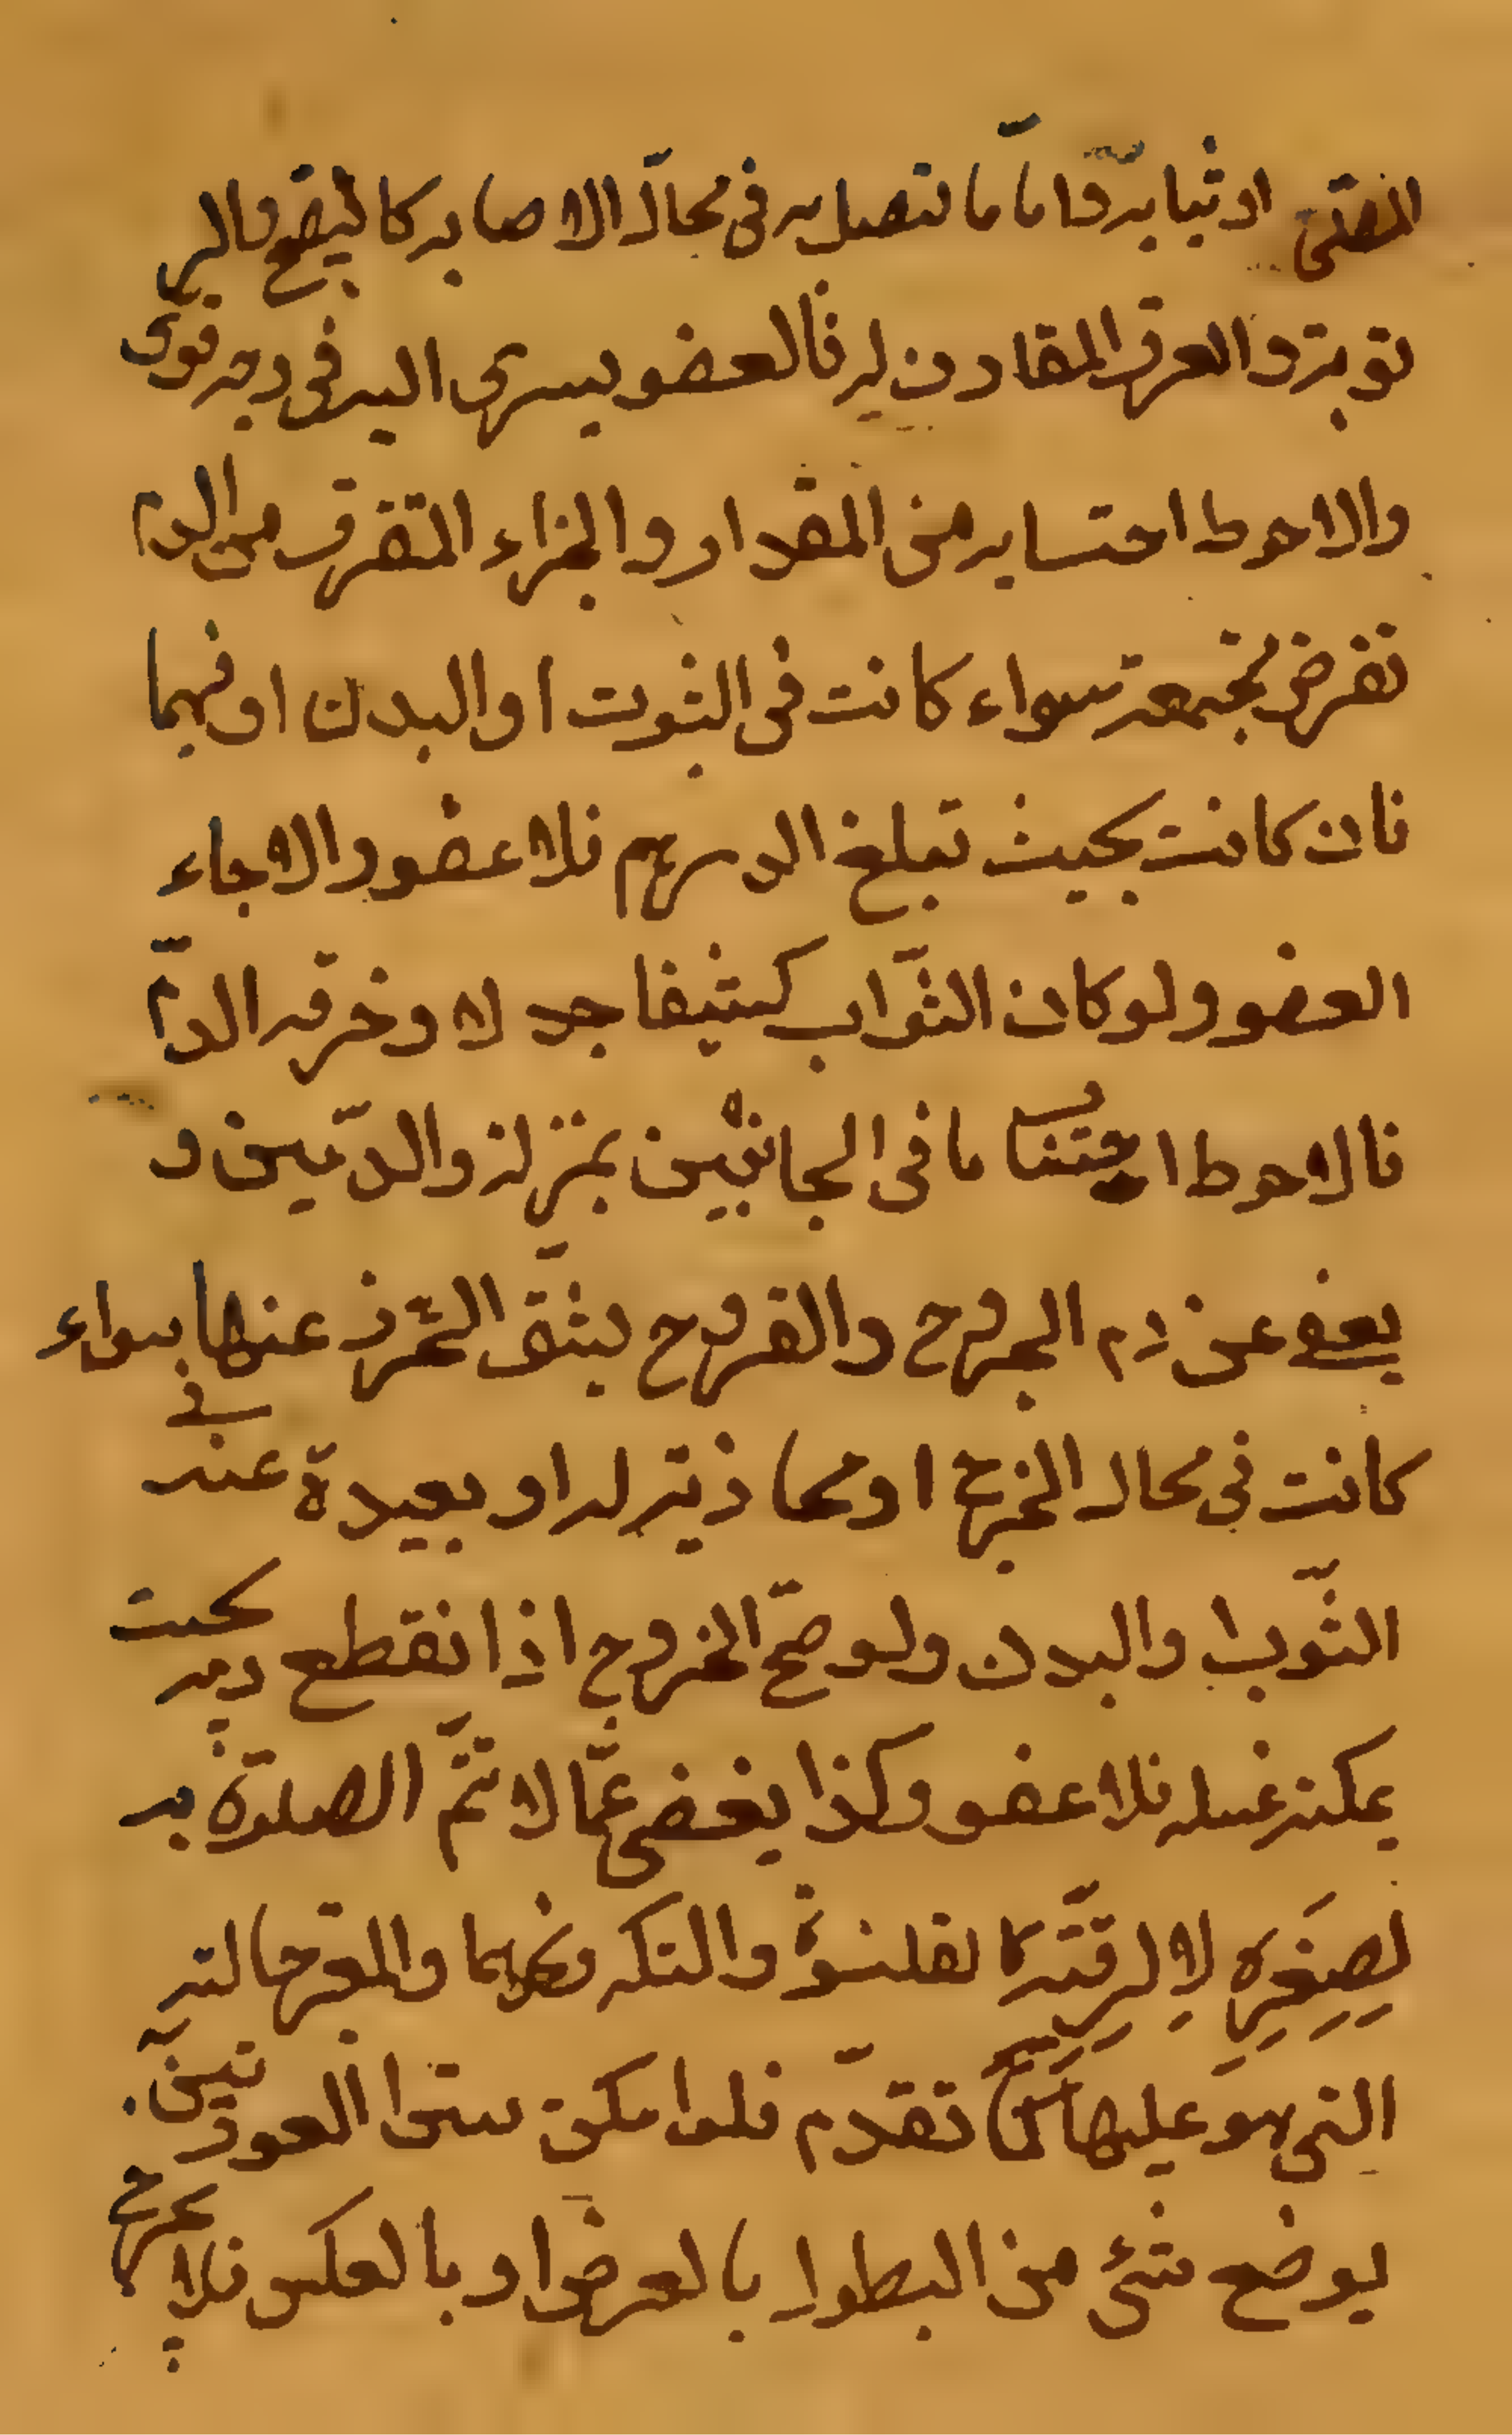 المصلّى او ثيابه واما ما تتصل به فى محالّ الاصابه كالقيح والر
طوبة والعرق المقارن له فالعفو يسرى اليه فى وجه قوى
والاحوط احتسابه من المقدار والاجزاء المتفرقه من الدم
تفرض مجتمعة سواء كانت فى الثوب او البدن او فيهما
فان كانت بحيث تبلغ الدرهم فلا عفو والا جاء
العفو ولو كان الثّواب كثيفا جدا وخرقه الدّم
فالاحوط احتساب ما فى الجانبين بمنزلة الدّمين و
يعفى عن دم الجروح والقروح يشقّ التّحرز عنها سواء
كانت فى محال الخرج او محاذية له او بعيدة عنه فى
الثّوب او البدن ولو صحّ الخروج اذا نقطع دمه بحيث
يمكنه غسله فلا عفو وكذا يعفى عمّا لا تتمّ الصلوة به
لصِغَرِه لا لرقّته كالقلنسوة والتكه ونحوهما والمعه حالته
التى هو عليها كن تقدّم فلو امكن ستر العورتين
بوضع شئ من الطول بالعرض او بالعكس فلا يخرج